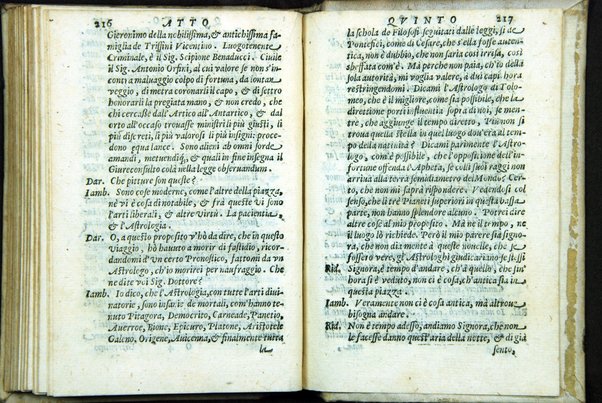 216 ATTO
Gieronimo della nobilissima, & antichissima fa-
miglia de Trissini Vicentino. Luogotenente
Criminale, è il Sig. Scipione Benaducci. Ciuile
il Sig. Antonio Orsini, al cui valore se non s'in-
contra maluaggio colpo di fortuna, da lontan
veggio, di metra coronarli il capo, & di scettro
honorarli la pregiata mano, & non credo, che
chi cercasse dall'Artico all'Antartico, & dal
orto all'occaso trouasse ministri li più giusti, li
più discreti, li più valorosi li più insigni: proce-
dono equa lance. Sono alieni ab omni sorde
amandi, metuendiq́;, & quali in fine insegna il
Giureconsulto colà nella legge obseruandum.
Dar. Che pitture son queste?
Iamb. Sono cose moderne, come l'altre della piazza,
ne vi è cosa di notabile, & frà queste vi sono
l'arti liberali, & altre Virtù. La pacientia,
& l'Astrologia.
Dar. O, a questo proposito v'hò da dire, che in questo
Viaggio, hò hauuto a morir di fastidio, ricor-
dandomi d'vn certo Pronostico, fattomi da vn
Astrologo, ch'io morirei per naufraggio. Che
ne dite voi Sig. Dottore?
Iamb. Io dico, che l'Astrologia, con tutte l'arti diui-
natorie, sono insidie de mortali, com'hanno te-
nuto Pitagora, Democrito, Carneade, Panetio,
Auerroe, Bione, Epicuro, Platone, Aristotele
Galeno, Origene, Auicenna, & finalmente tutta
la
QVINTO 217
la schola de Filosofi seguitati dalle leggi, sì de
Pontefici, como di Cesare, che s'ella fosse auten-
tica, non è dubbio, che non saria così irrisa, così
sbeffata com'è. Mà perche non paia, ch'io della
sola autorità, mi voglia valere, à dui capi hora
restringendomi. Dicami l'Astrologo di Tolo-
meo, che è il migliore, come sia possibile, che la
direttione porti influentia sopra di noi, se men-
tre, che aggiunge il tempo diretto, Più non si
troua quella Stella in quel luogo dou'era al tem-
po della natiuità? Dicami parimente l'Astro-
logo, com'è possibile, che l'oppositione dell'in-
fortune offenda l'Apheta, se colui suoi raggi non
arriua alla terza semidiametro del Mondo? Cer-
to, che non mi saprà rispondere. Vedendosi col
senso, che li tre Pianeti superiori in questa bassa
parte, non hanno splendore alcuno. Potrei dire
altre cose al mio proposito. Mà ne il tempo, ne
il luogo lò richiede. Però il mio parere sia signo-
ra, che non dia mente à queste nouelle, che se
fossero vere, gli Astrologhi giudicariano se stessi
Rid. Signora, è tempo d'andare, ch'à quello, che sin'
hora si è veduto, non ci è cosa, antica sia in
questa piazza.
Iamb. Veramente non ci è cosa antica, mà altroue
bisogna andare.
Rid. Non è tempo adesso, andiamo Signora, che non
le facesse danno quest'aria della notte, & di già
sento,